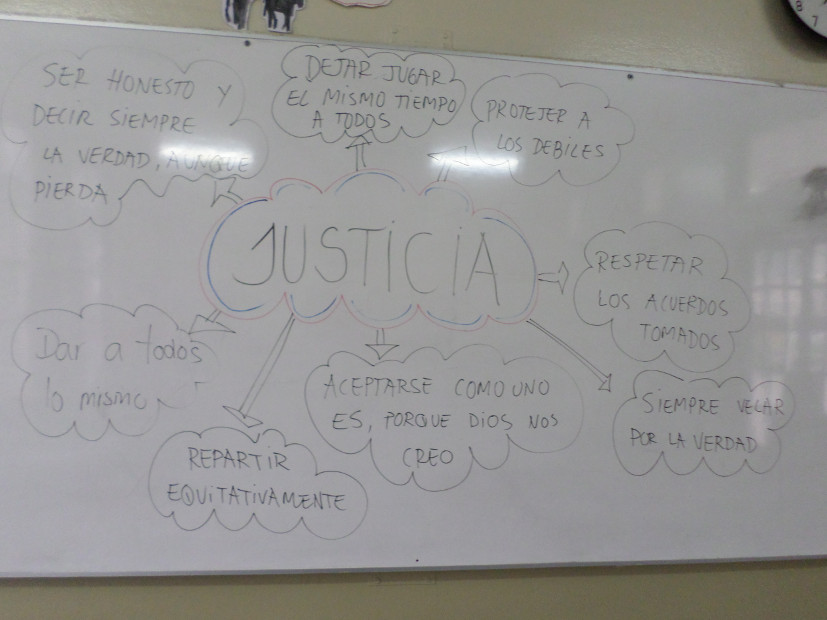 SER HONESTO Y
DECIR SIEMPRE
LA VERDAD, AUNQUE
PIERDA
DEJAR JUGAR
EL MISMO TIEMPO
A TODOS
PROTEJER A
LOS DEBILES
JUSTICIA
RESPETAR
LOS ACUERDOS
TOMADOS
Dar a todos
lo mismo
ACEPTARSE COMO UNO
ES, PORQUE DIOS NOS
CREO
SIEMPRE VELAR
POR LA VERDAD
REPARTIR
EQUITATIVAMENTE
8
7